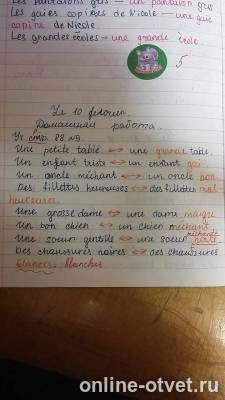 Les pantalons gris – un pantalon gris
Les gaies copines de Nicole – une gaie
copine de Nicole.
Les grandes écoles – une grande école.
5
Le 10 février.
Домашняя работа.
Уч. стр. 88 №9
Une petite table ↔ une grande table
Un enfant triste ↔ un enfant gai
Un oncle méchant ↔ un oncle bon
Des fillettes heureuses ↔ des fillettes mal-
heureuses.
Une grosse dame ↔ une dame maigre
Un bon chien ↔ un chien méchant
Une soeur gentille ↔ une soeur méchante
Des chaussures noires ↔ des chaussures
blanches.
online-otvet.ru